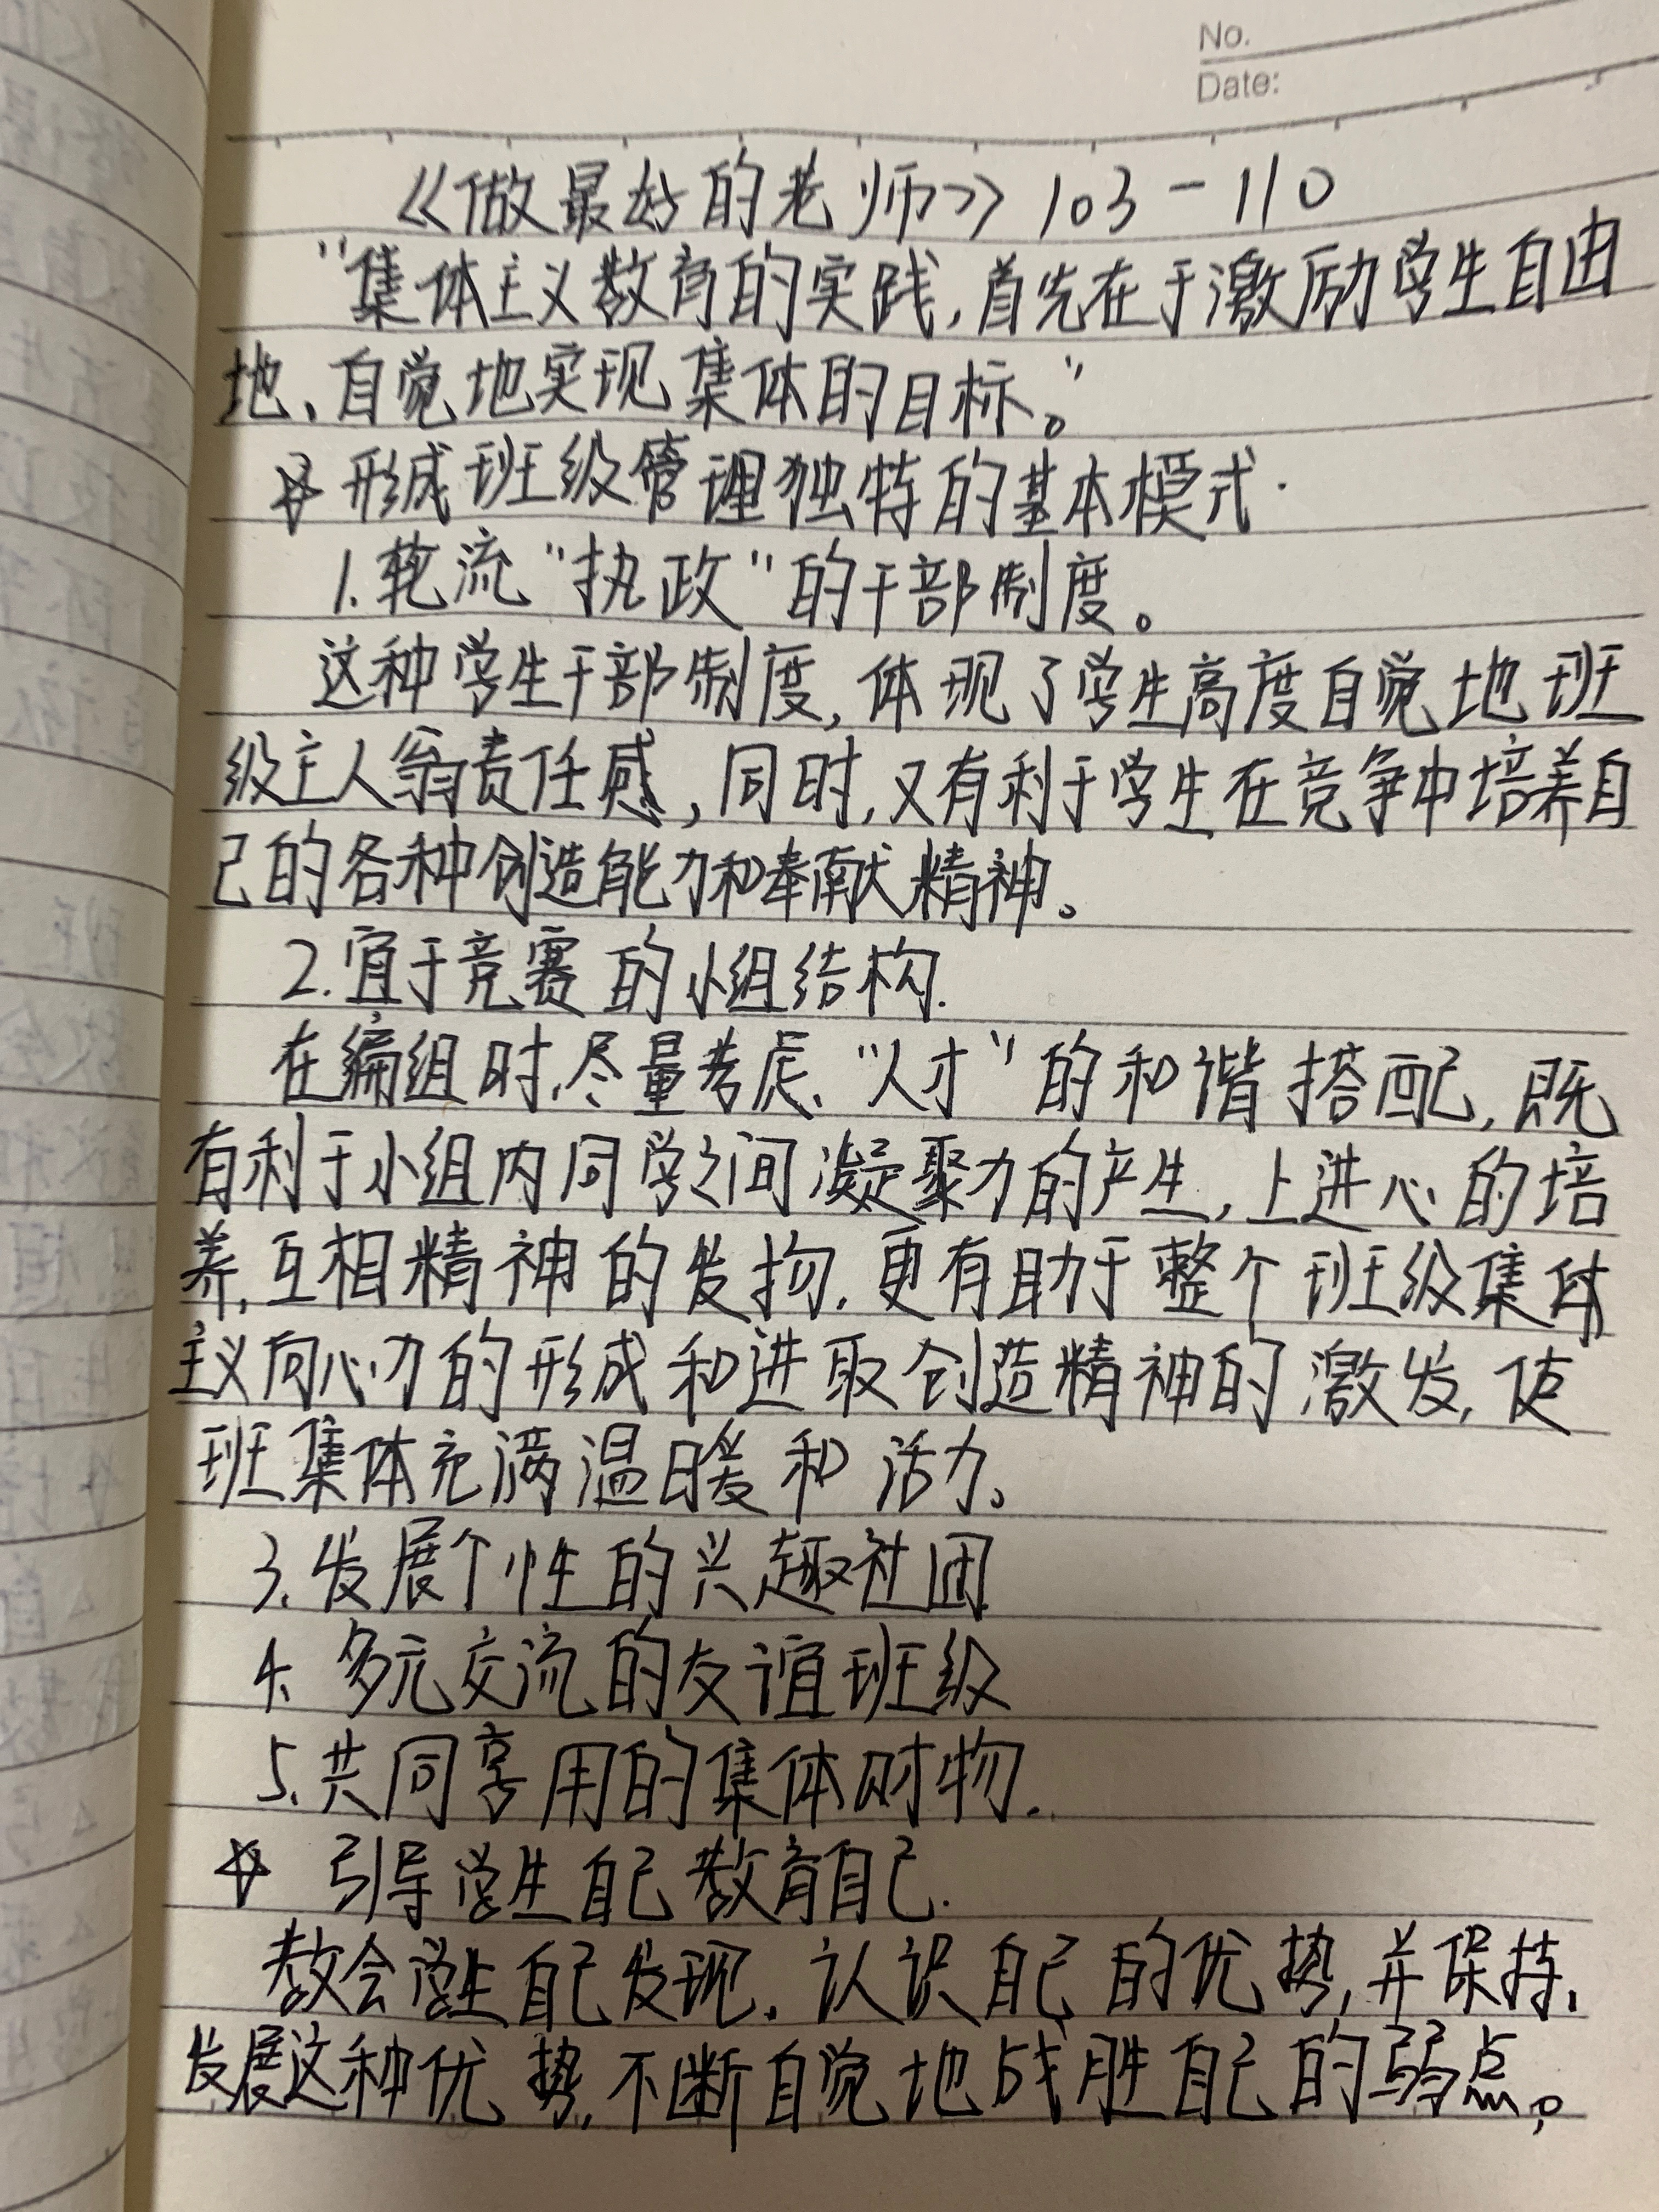 No.
Date:
《做最好的老师》103-110
"集体主义教育的实践,首先在于激励学生自由
地、自觉地实现集体的目标。"
☆ 形成班级管理独特的基本模式.
1.轮流"执政"的干部制度。
这种学生干部制度,体现了学生高度自觉地班
级主人翁责任感,同时,又有利于学生在竞争中培养自
己的各种创造能力和奉献精神。
2.宜于竞赛的小组结构.
在编组时,尽量考虑、"人才"的和谐搭配,既
有利于小组内同学之间凝聚力的产生,上进心的培
养,互相精神的发扬.更有助于整个班级集体
主义向心力的形成和进取创造精神的激发,使
班集体充满温暖和活力。
3.发展个性的兴趣社团
4、多元交流的友谊班级
5、共同享用的集体财物.
☆ 引导学生自己教育自己.
教会学生自己发现、认识自己的优势,并保持、
发展这种优势,不断自觉地战胜自己的弱点。